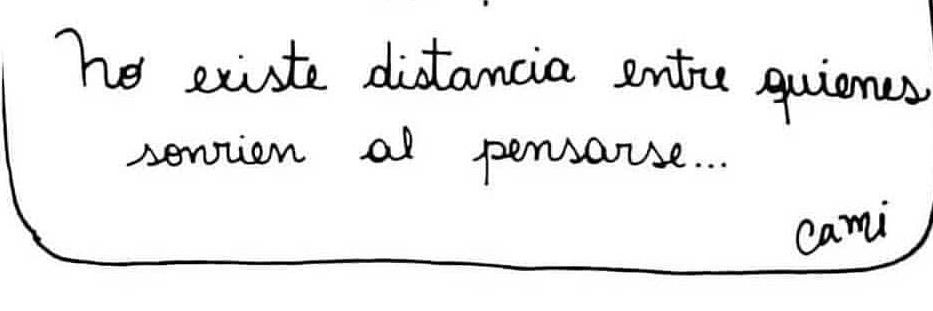 No existe distancia entre quienes
sonrien al pensarse...
Cami